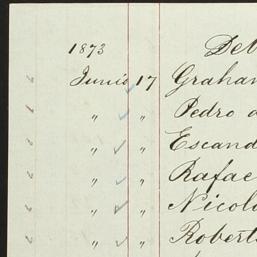 1873 Det
Junio 17 Graham
" " Pedro a
" " Escand
" " Rafae
" " Nicola
" " Roberts